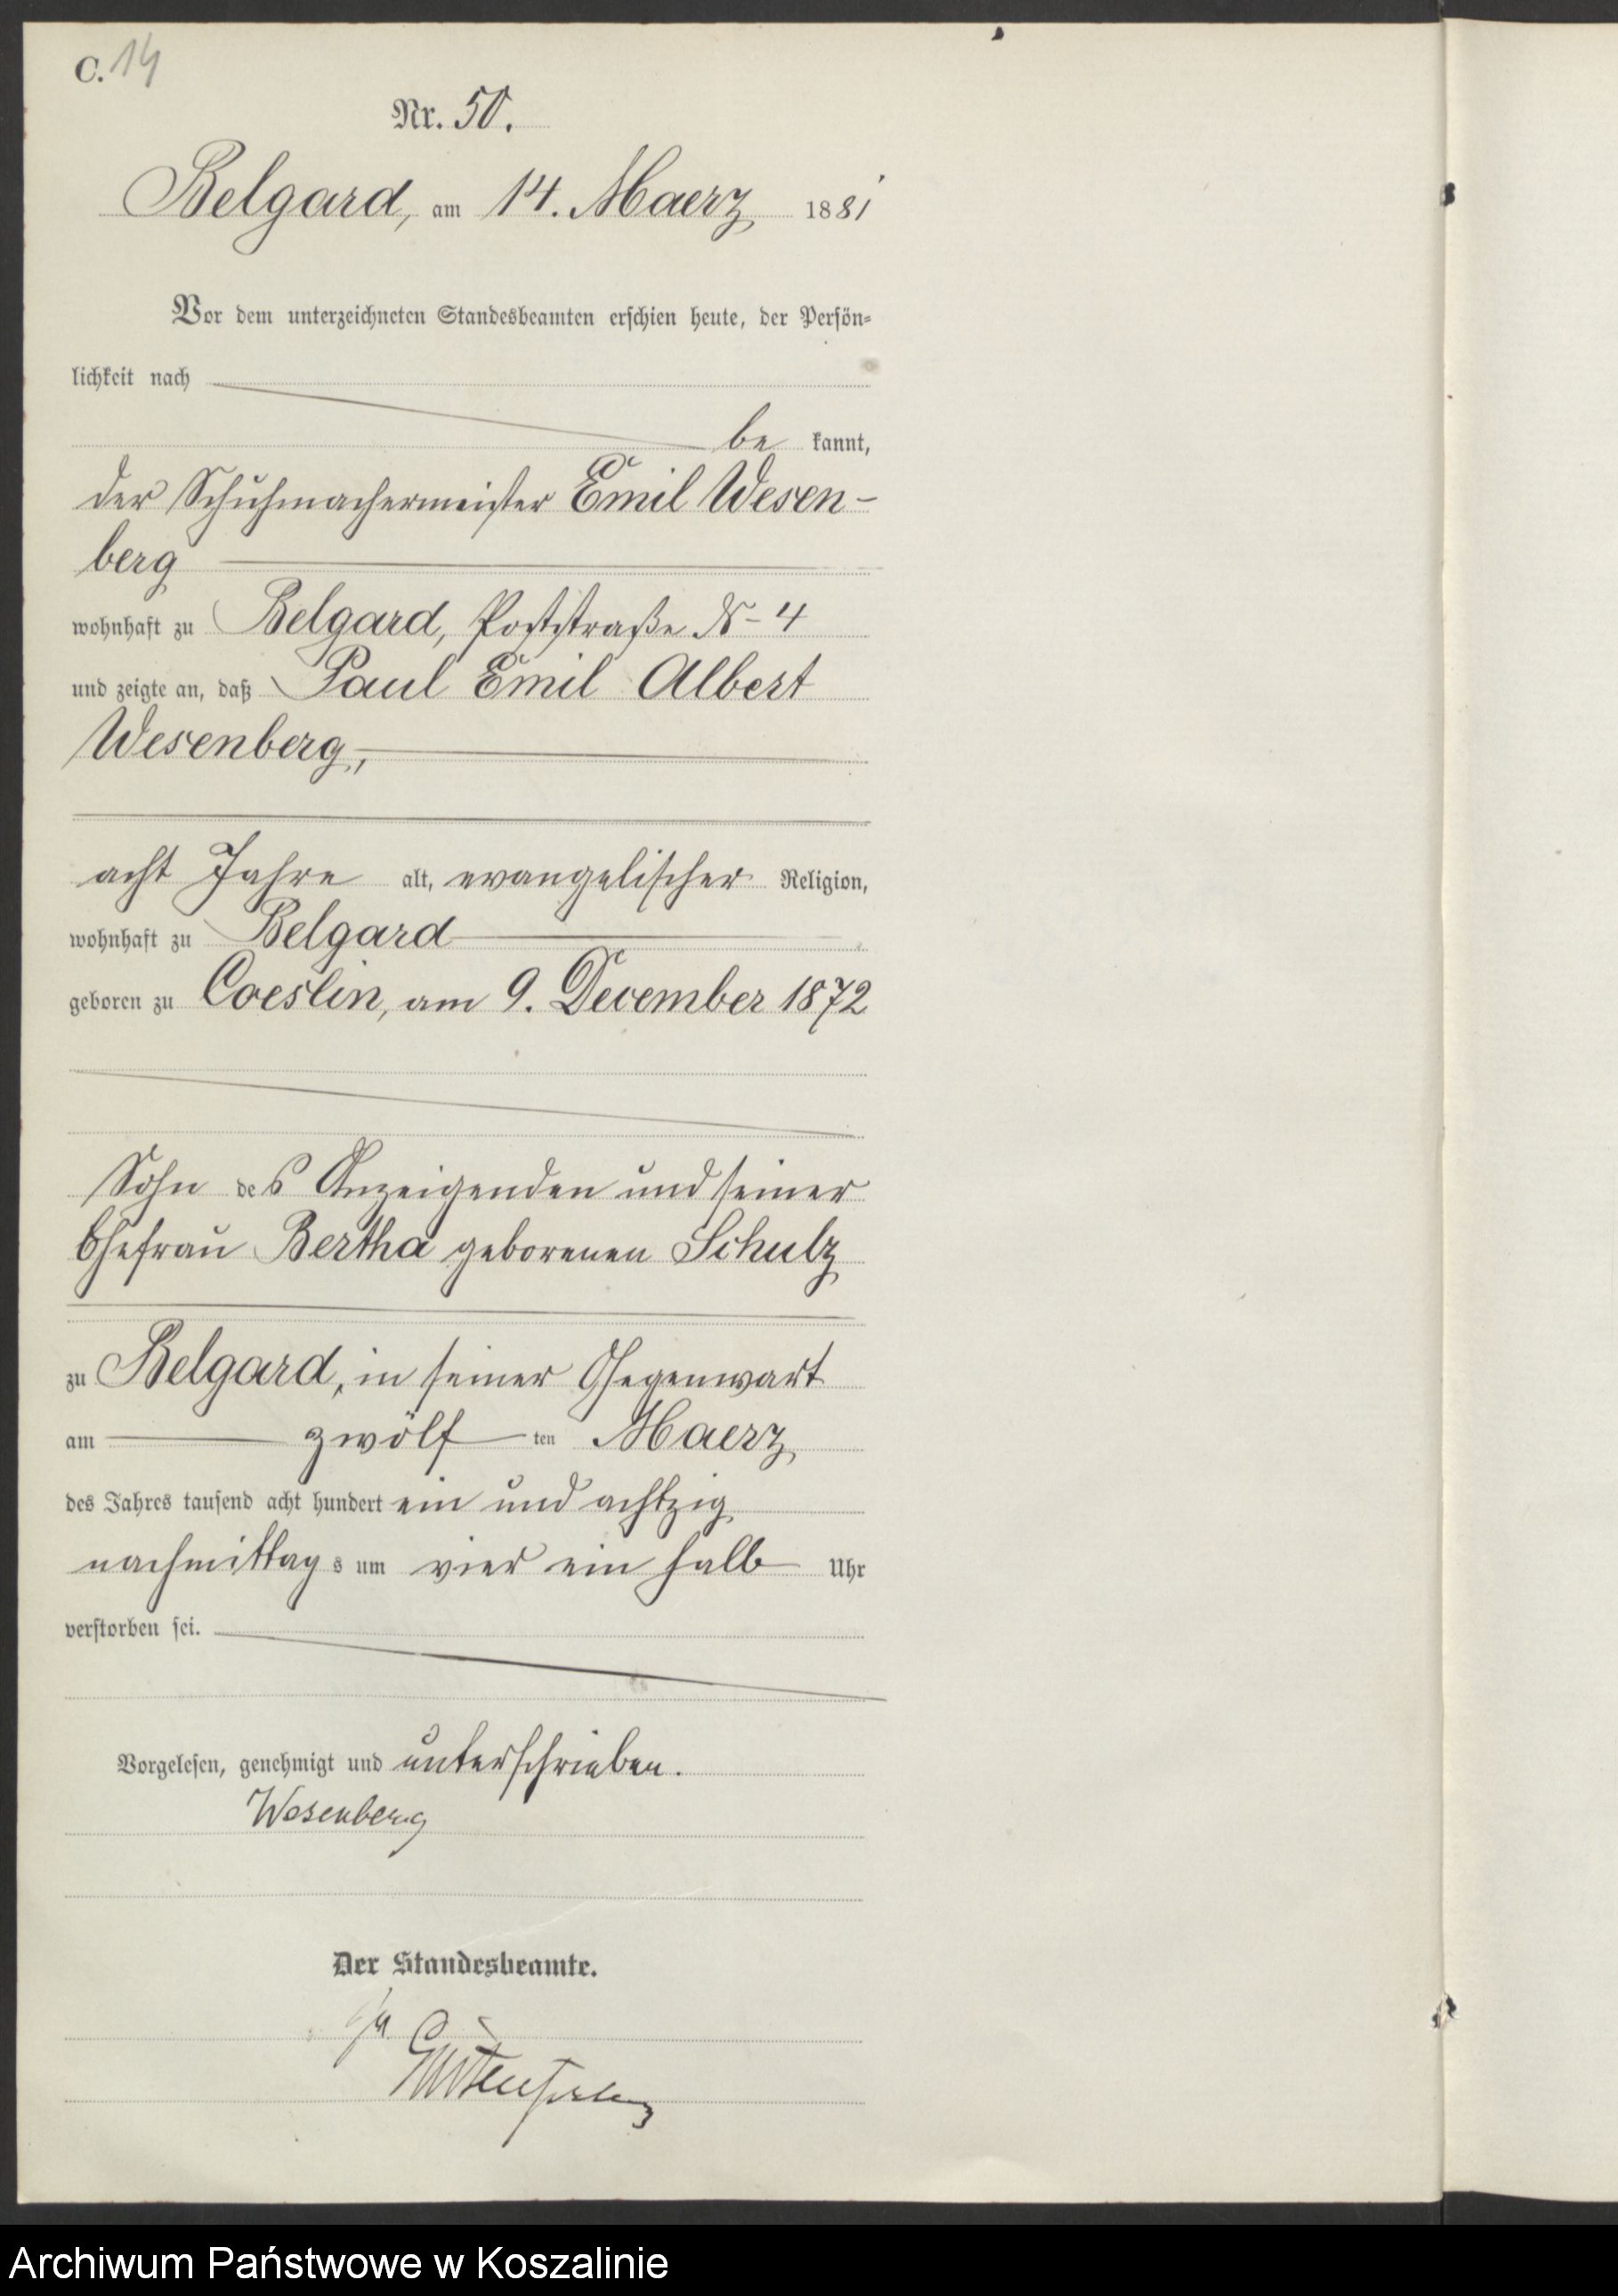 C. 14
Nr. 50.
Belgard, am 14. Maerz 1881
Vor dem unterzeichneten Standesbeamten erschien heute, der Persön-
lichkeit nach
be kannt,
der Schuhmachermeister Emil Wesen-
berg
wohnhaft zu Belgard, Poststraße № 4
und zeigte an, daß Paul Emil Albert
Wesenberg,
acht Jahre alt, evangelischer Religion,
wohnhaft zu Belgard
geboren zu Coeslin, am 9. December 1872
Sohn des Anzeigenden und seiner
Ehefrau Bertha geborenen Schulz
zu Belgard, in seiner Gegenwart
am zwölf ten Maerz
des Jahres tausend acht hundert ein und achtzig
nachmittags um vier ein halb Uhr
verstorben sei.
Vorgelesen, genehmigt und unterschrieben.
Wesenberg
Der Standesbeamte.
Archiwum Państwowe w Koszalinie